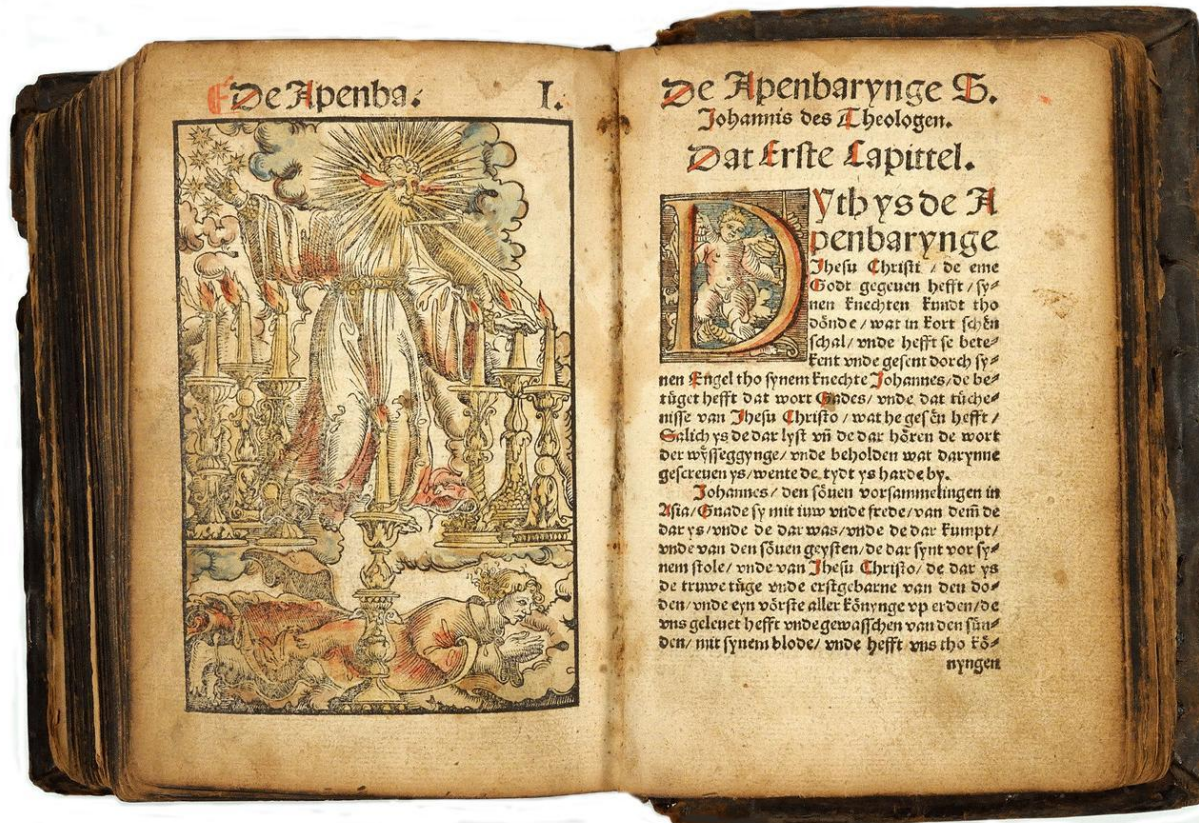 De Apenba. I.
De Apenbarynge S.
Johannis des Theologen.
Dat Erste Capittel.
DYth ys de A
penbarynge
Jhesu Christi / de eme
Godt gegeuen hefft / sy⸗
nen knechten kundt tho
dönde / wat in kort schën
schal / vnde hefft se bete⸗
kent vnde gesent dorch sy⸗
nen Engel tho synem knechte Johannes / de be⸗
tüget hefft dat wort Gades / vnde dat tüche⸗
nisse van Jhesu Christo / wat he gesën hefft /
Salich ys de dar lyst vñ de dar hören de wort
der wysseggynge / vnde beholden wat darynne
gescreuen ys / wente de tydt ys harde by.
Johannes / den söuen vorsammelingen in
Asia / Gnade sy mit iuw vnde frede / van dem̄ de
dar ys / vnde de dar was / vnde de dar kumpt /
vnde van den söuen geysten / de dar synt vor sy⸗
nem stole / vnde van Jhesu Christo / de dar ys
de truwe tüge vnde erstgebarne van den do⸗
den / vnde eyn vörste aller könynge vp erden / de
vns geleuet hefft vnde gewasschen van den sün⸗
den / mit synem blode / vnde hefft vns tho kö⸗
nyngen